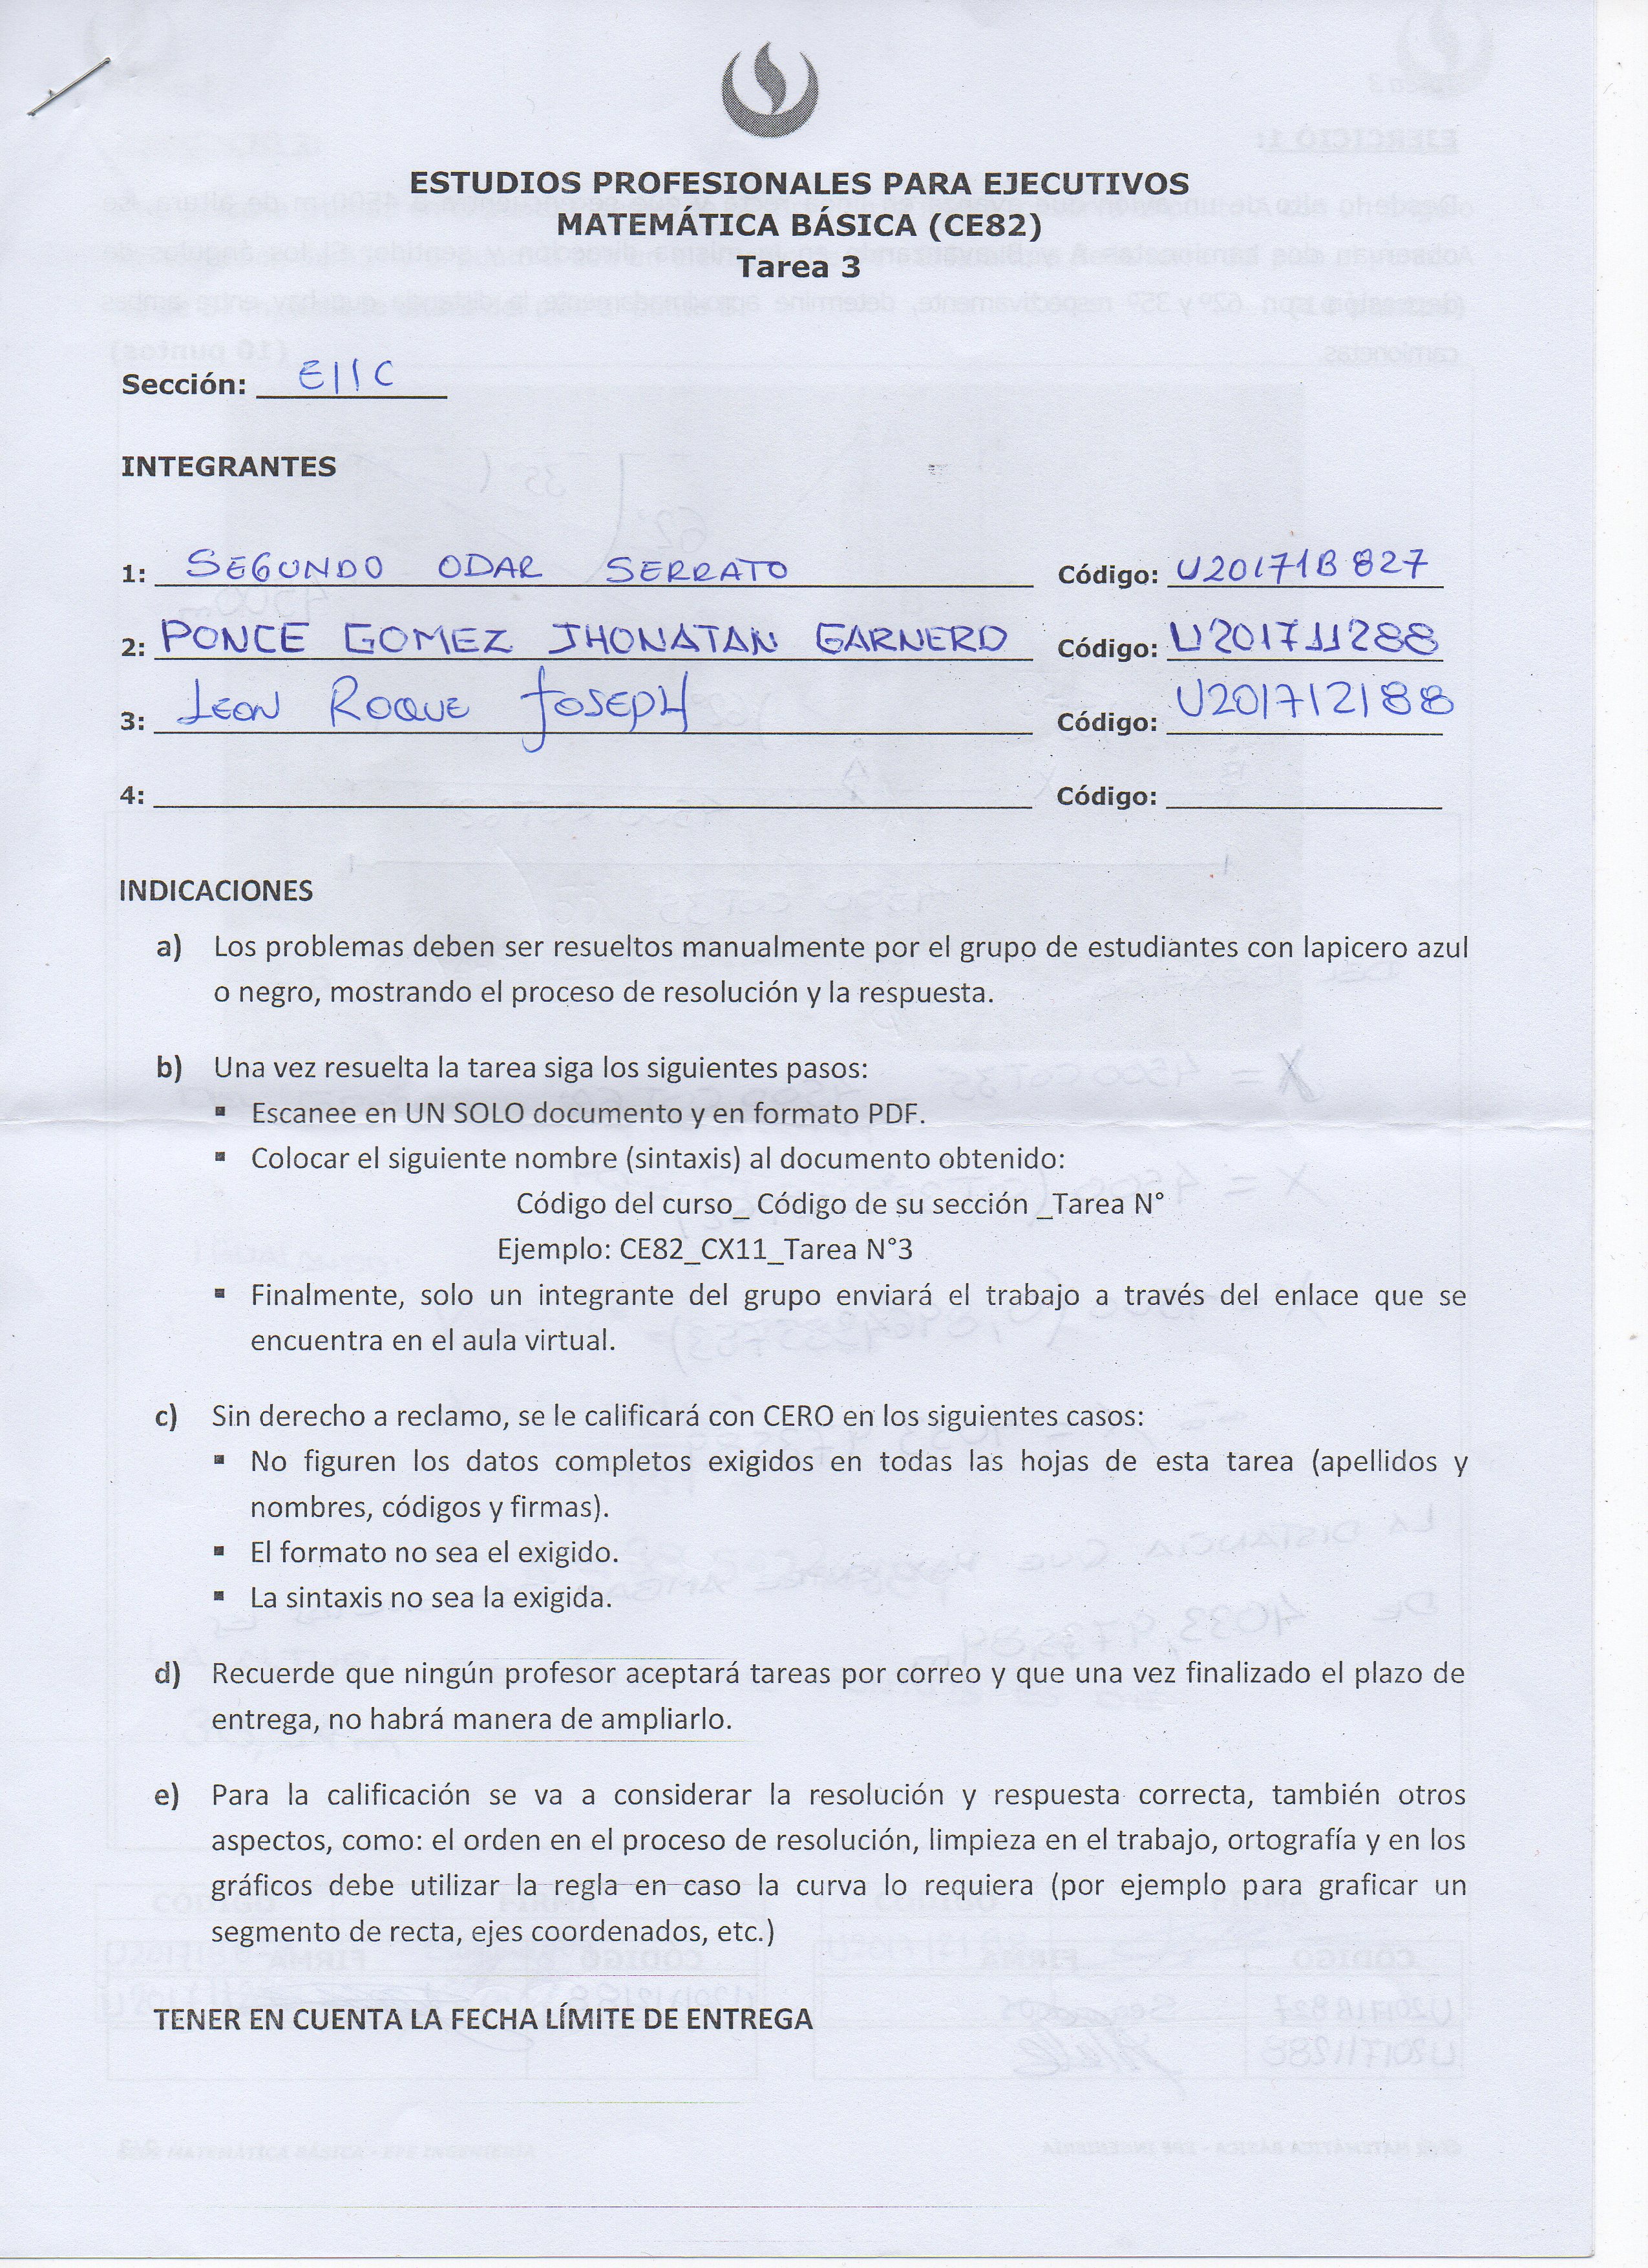 ESTUDIOS PROFESIONALES PARA EJECUTIVOS
MATEMÁTICA BÁSICA (CE82)
Tarea 3
Sección: E11C
INTEGRANTES
1: SEGUNDO ODAR SERRATO Código: U20171B827
2: PONCE GOMEZ JHONATAN GARNERO Código: U201711288
3: LEON ROQUE JOSEPH Código: U201712188
4: Código:
INDICACIONES
a) Los problemas deben ser resueltos manualmente por el grupo de estudiantes con lapicero azul
o negro, mostrando el proceso de resolución y la respuesta.
b) Una vez resuelta la tarea siga los siguientes pasos:
▪ Escanee en UN SOLO documento y en formato PDF.
▪ Colocar el siguiente nombre (sintaxis) al documento obtenido:
Código del curso_ Código de su sección _Tarea N°
Ejemplo: CE82_CX11_Tarea N°3
▪ Finalmente, solo un integrante del grupo enviará el trabajo a través del enlace que se
encuentra en el aula virtual.
c) Sin derecho a reclamo, se le calificará con CERO en los siguientes casos:
▪ No figuren los datos completos exigidos en todas las hojas de esta tarea (apellidos y
nombres, códigos y firmas).
▪ El formato no sea el exigido.
▪ La sintaxis no sea la exigida.
d) Recuerde que ningún profesor aceptará tareas por correo y que una vez finalizado el plazo de
entrega, no habrá manera de ampliarlo.
e) Para la calificación se va a considerar la resolución y respuesta correcta, también otros
aspectos, como: el orden en el proceso de resolución, limpieza en el trabajo, ortografía y en los
gráficos debe utilizar la regla en caso la curva lo requiera (por ejemplo para graficar un
segmento de recta, ejes coordenados, etc.)
TENER EN CUENTA LA FECHA LÍMITE DE ENTREGA